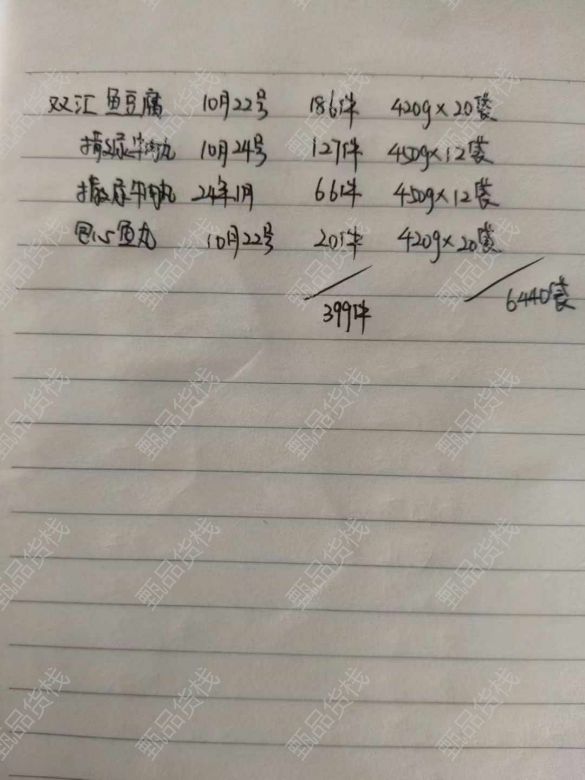 双汇 鱼豆腐 10月22号 186件 420g×20袋
撒尿牛肉丸 10月24号 127件 450g×12袋
撒尿牛肉丸 24年1月 66件 450g×12袋
包心鱼丸 10月22号 20件 420g×20袋
399件 6440袋
甄品货栈